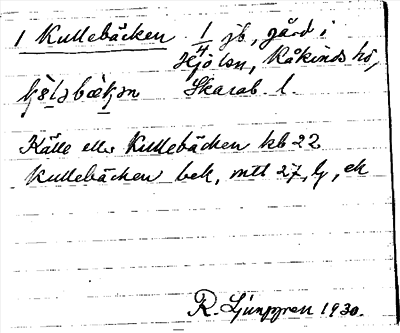 1 Kullebäcken 1/4 jb., gård i
Hjo lsn, Kåkinds hd,
Skarab. l.
Källe ell. Kullebäcken kb 22
Kullebäcken bek, mtl 27, ek
R. Ljunggren 1930.